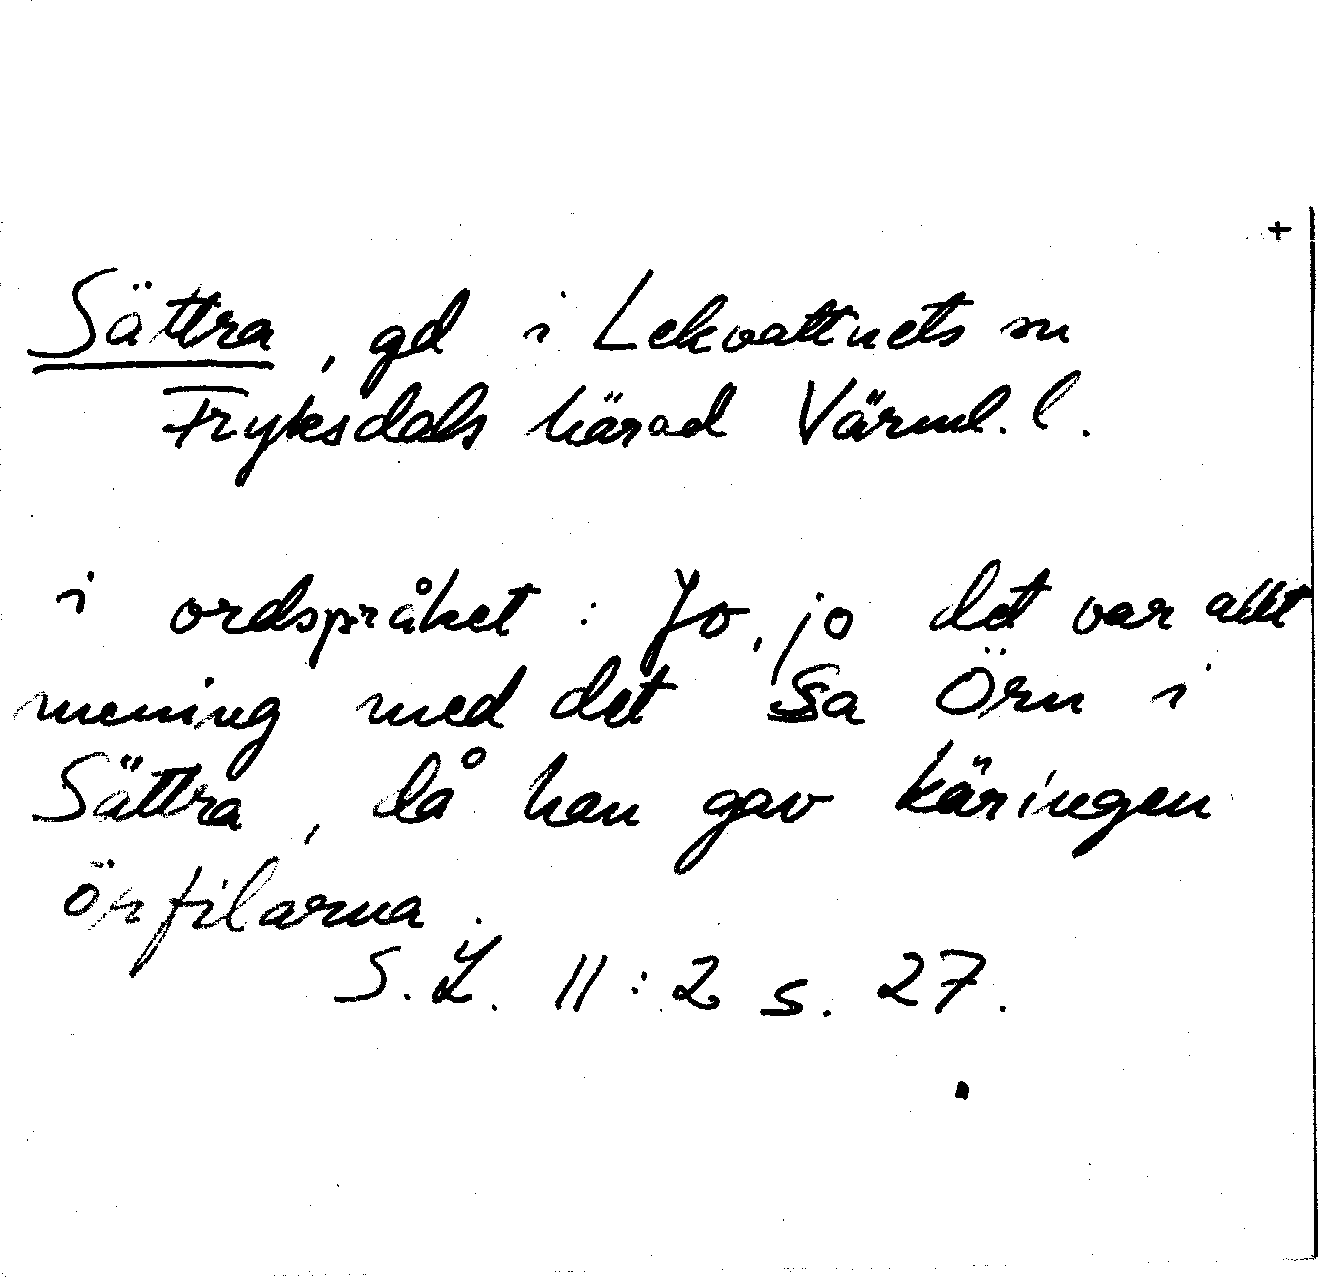 +
Sättra, gd i Lekvattnets sn
Fryksdals härad Värml. l.
i ordspråket: Jo, jo det var allt
mening med det sa Örn i
Sättra, då han gav käringen
örfilarna.
S.L. 11:2 s. 27.